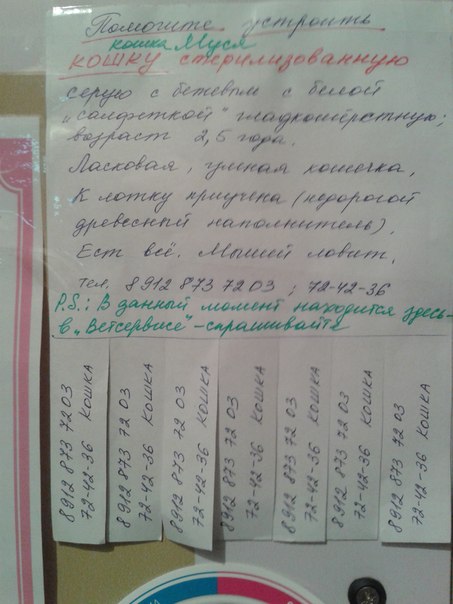 Помогите устроить
кошка Муся
кошку стерилизованную
серую с бежевым с белой
„салфеткой" гладкошёрстную;
возраст 2,5 года.
Ласковая, умная кошечка.
К лотку приучена (недорогой
древесный наполнитель).
Ест всё. Мышей ловит.
тел. 8 912 873 72 03 ; 72-42-36
P.S.: В данный момент находится здесь-
в „Ветсервисе" - спрашивайте
8 912 873 72 03
72-42-36 КОШКА
8 912 873 72 03
72-42-36 КОШКА
8 912 873 72 03
72-42-36 КОШКА
8 912 873 72 03
72-42-36 КОШКА
8 912 873 72 03
72-42-36 КОШКА
8 912 873 72 03
72-42-36 КОШКА
8 912 873 72 03
72-42-36 КОШКА